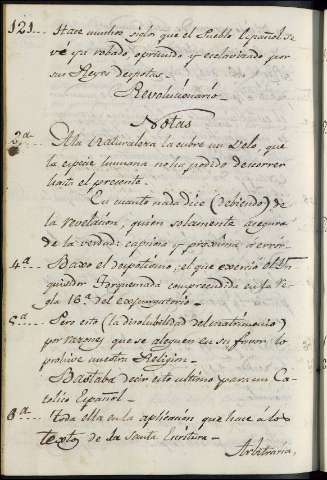 121... Hace muchos siglos que el Pueblo Español se
vé ya robado, oprimido y esclavizado por
sus Reyes despotas.
Revolucionario.
Notas
3ª... A la Naturaleza la cubre un Velo, que
la especie humana no ha podido descorrer
hasta el presente.
En cuanto nada dice (debiendo) de
la revelacion, quien solamente asegura
de la verdad: capciosa y proxima a error.
4ª... Baxo el despotismo, el que exerció el In-
quisidor Torquemada comprendido en la Re-
gla 16ª del expurgatorio.
5ª... Pero esto (la disolubilidad del matrimonio)
por razones que se aleguen en su favor, lo
prohive nuestra Religion.
Bastaba decir esto ultimo para un Ca-
tolico Español.
8ª... toda ella en la aplicacion que hace á los
textos de la Santa Escritura.
Arbitraria,